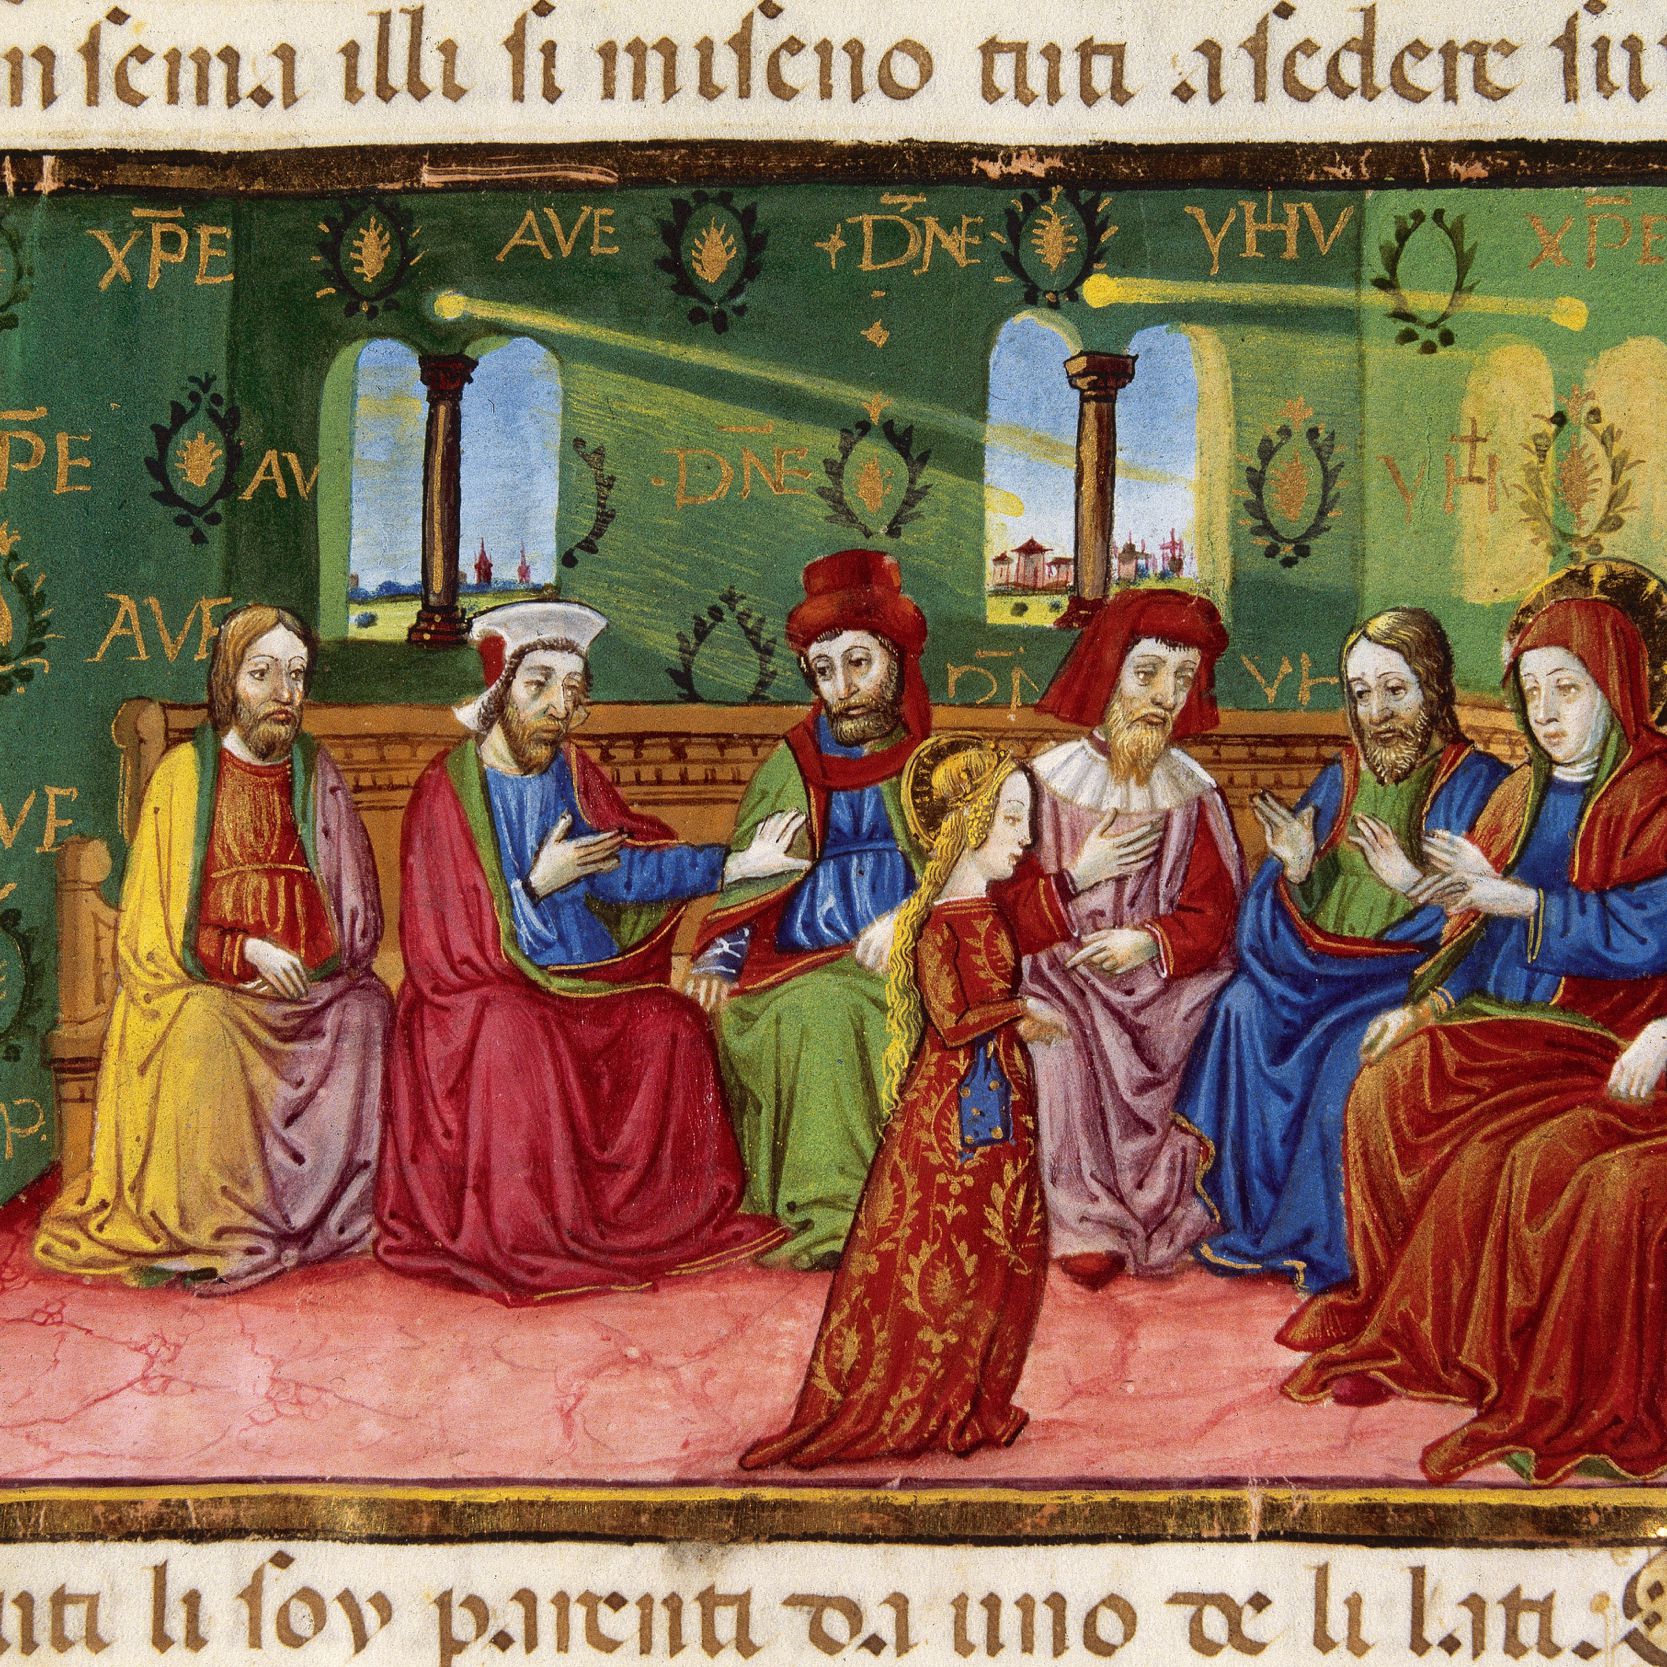 nsema illi si miseno tuti .a sedere su
XP̄E AVE +DN̄E YHV XP̄E
P̄E AV ·DN̄E YH
AVE D̄N YH
VE
P.
uti li soy parenti da uno de li lati.